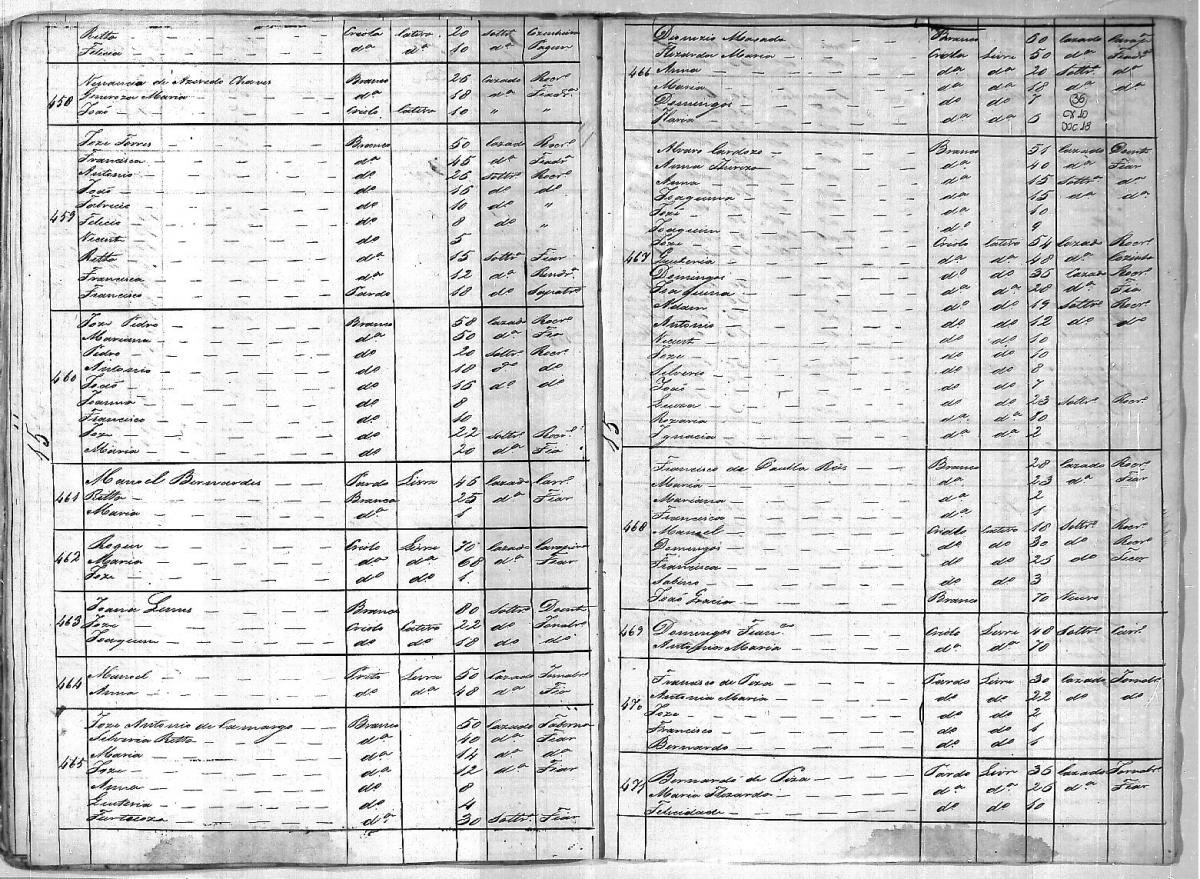 Ritta Criola Cativo 20 Soltr.ª Cozinheira
Felicia d.ª d.ª 10 d.ª Pagem
458
Venancio de Azevedo Chaves Branco 26 Cazado Rocr.º
Generoza Maria d.ª 18 d.ª Fiadr.ª
João Criolo Cativo 10 "
459
Joze Torres Branco 50 Cazado Rocr.º
Francisca d.ª 45 d.ª Fiadr.ª
Antonio d.º 25 Soltr.º Rocr.º
João d.º 16 d.º d.º
10 d.º "
Felicio d.º 8 d.º "
Vicente d.º 5
Ritta d.º 15 Soltr.ª Fiar
Francisca d.ª 12 d.ª
Francisco Pardo 18 d.º
460
Joze Pedro Branco 58 Cazado Rocr.º
Mariana d.ª 50 d.ª Fia
Pedro d.º 20 Soltr.º Rocr.º
Antonio d.º 18 d.º d.º
João d.º 16 d.º d.º
Joanna d.º 8
Francisco d.º 10
Joze d.º 22 Soltr.º Rocr.º
Maria d.º 20 d.ª Fia
15
461
Manoel Benevardes Pardo Livre 45 Cazado Carr.º
Ritta Branca 25 d.ª Fiar
Maria d.ª 1
462
Roque Criolo Livre 70 Cazado Carapina
Maria d.ª d.ª 68 d.ª Fiar
Joze d.º d.º 1
463
Joana Lemes Branca 80 Soltr.ª
Joze Criolo Cativo 22 d.º Jornalr.º
Joaquim d.º d.º 18 d.º d.º
464
Manoel Preto Livre 50 Cazado Jornalr.º
Anna d.º d.ª 48 d.ª Fia
465
Joze Antonio de Camargo Branco 50 Cazado Taberna
Silveria Ritta d.ª 40 d.ª Fiar
Maria d.ª 14 d.ª d.ª
Joze d.ª 12 d.ª Fiar
Anna d.º 8
Luteria d.º 4
d.ª 30 Soltr.ª Fiar
466
Dionizio Macado Branco 60 Cazado
Maria Criola Livre 50 d.ª Fiadr.ª
Anna d.ª d.ª 20 Soltr.ª d.ª
Maria d.ª d.ª 18 d.ª d.ª
Domingos d.º d.º 7
Maria d.ª d.ª 5
36
CX 10
DOC 18
467
Alvaro Cardozo Branco 51 Cazado
Anna Thereza d.ª 40 d.ª Fiar
Anna d.ª 15 Soltr.ª d.ª
Joaquina d.ª 15 d.ª d.ª
Joze d.ª 10
Joaquim d.º 9
Joze Criolo Cativo 54 Cazado Rocr.º
d.ª d.ª 48 d.ª Cozinha
Domingos d.º d.º 35 Cazado Rocr.º
Joaquina d.ª d.ª 28 d.ª Fia
Adam d.º d.º 19 Soltr.º Rocr.º
Antonio d.º d.º 12 d.º d.º
Vicente d.º d.º 10
Joze d.º d.º 10
Silverio d.º d.º 8
João d.º d.º 7
Luiza d.º d.º 23 Soltr.ª Rocr.ª
Rozaria d.ª d.ª 80
Ignacia d.ª d.ª 2
15
468
Francisco de Paulla Branco 28 Cazado Rocr.º
Maria d.ª 23 d.ª Fiar
Mariana d.ª 2
Francisca d.ª 1
Manoel Criolo Cativo 18 Soltr.º Rocr.º
Domingos d.º d.º 30 d.º Rocr.º
Francisca d.º d.º 25 d.º
Sabino d.º d.º 3
João Gracia Branco 70 Viuvo
469
Domingos Criolo Livre 48 Soltr.º Carr.º
Maria d.ª d.ª 70
470
Francisco de Piza Pardo Livre 30 Cazado Jornalr.º
Antonia Maria d.º d.º 22 d.º d.º
Joze d.º d.º 2
Francisco d.º d.º 1
Bernardo d.º d.º 1
471
Bernardo de Piza Pardo Livre 35 Cazado Jornalr.º
Maria d.ª d.ª 26 d.ª Fiar
Felicidade d.º d.º 10